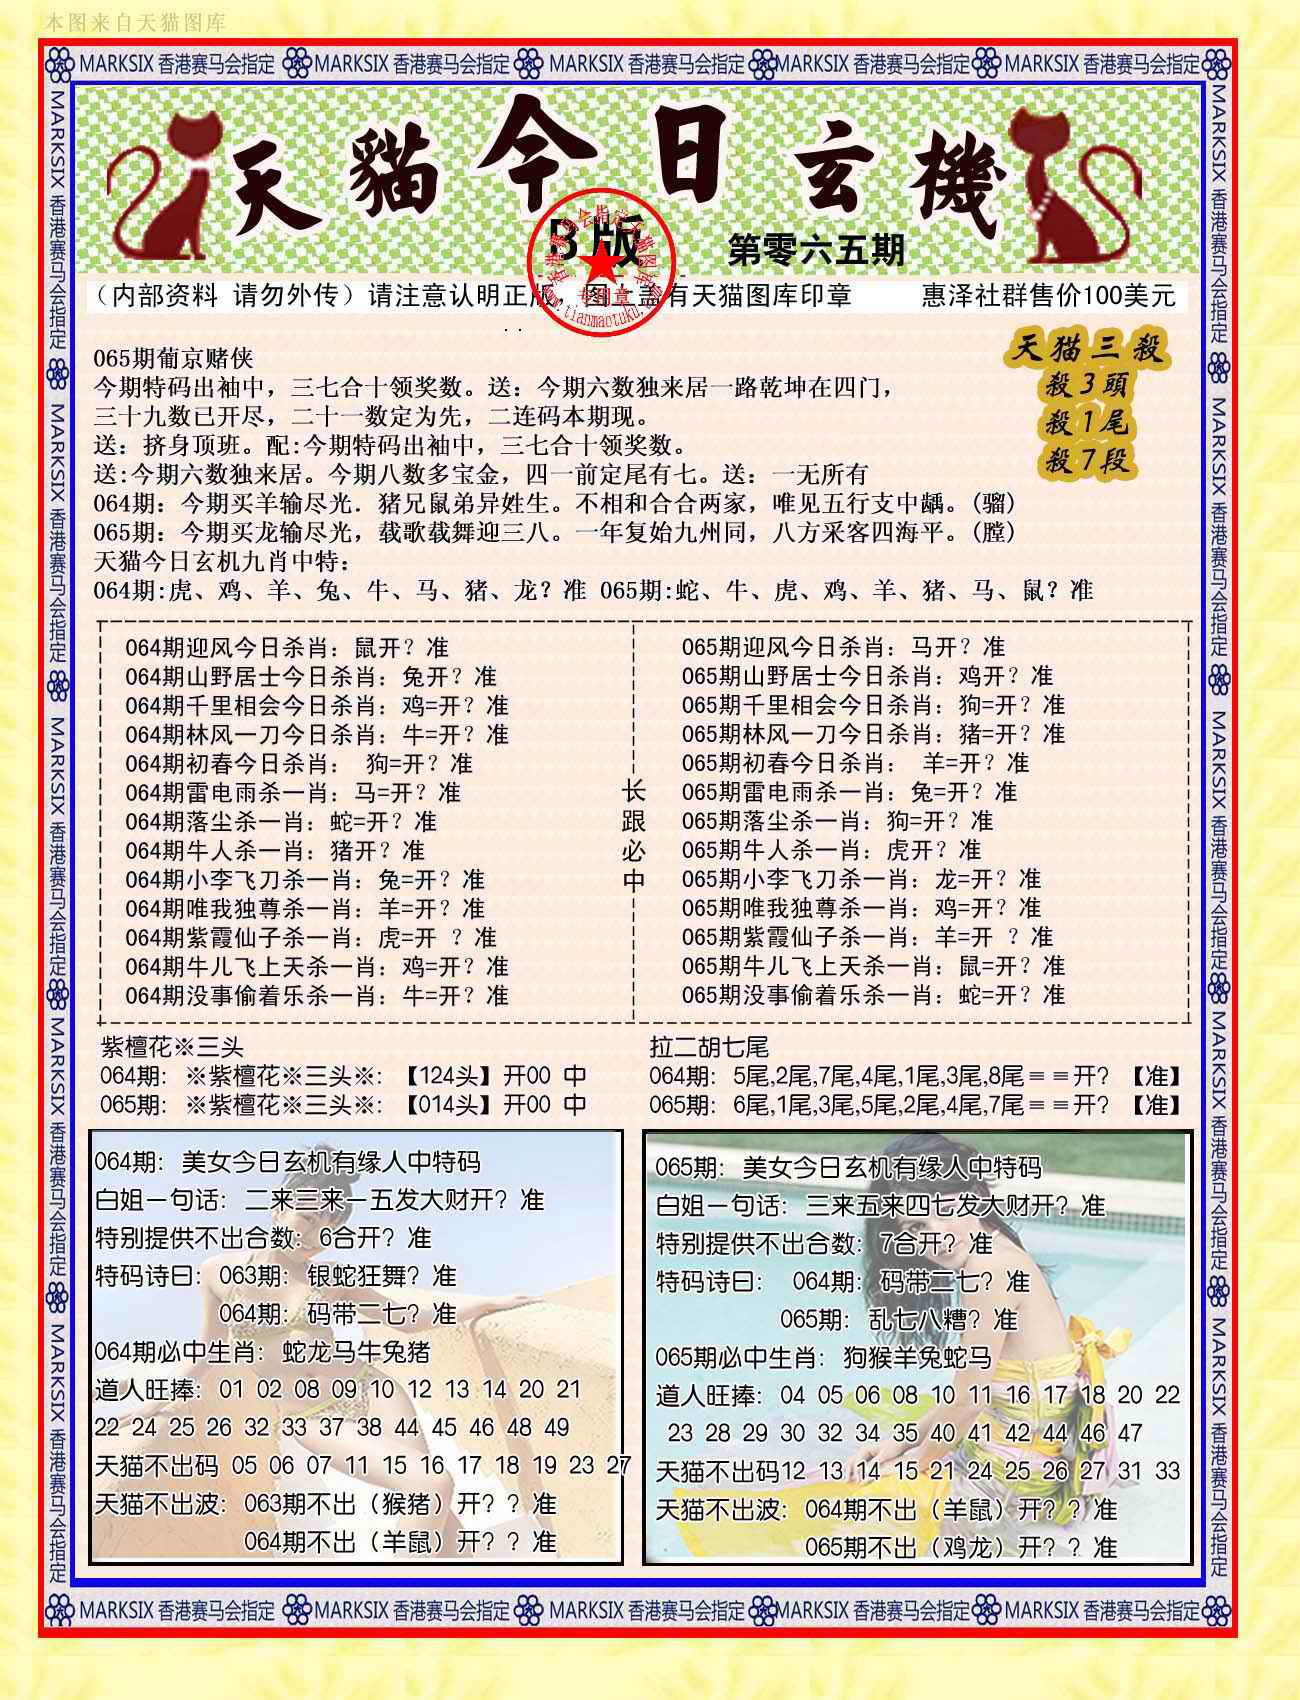 本图来自天猫图库
MARKSIX 香港赛马会指定 MARKSIX 香港赛马会指定 MARKSIX 香港赛马会指定 MARKSIX 香港赛马会指定 MARKSIX 香港赛马会指定
天貓今日玄機
B版
第零六五期
香港赛马会指定天猫图库
专用章
www.tianmaotuku.com
(内部资料 请勿外传)请注意认明正版,图上盖有天猫图库印章 惠泽社群售价100美元
天猫三殺
殺3頭
殺1尾
殺7段
065期葡京赌侠
今期特码出袖中,三七合十领奖数。送:今期六数独来居一路乾坤在四门,
三十九数已开尽,二十一数定为先,二连码本期现。
送:挤身顶班。配:今期特码出袖中,三七合十领奖数。
送:今期六数独来居。今期八数多宝金,四一前定尾有七。送:一无所有
064期:今期买羊输尽光.猪兄鼠弟异姓生。不相和合合两家,唯见五行支中龋。(骝)
065期:今期买龙输尽光,载歌载舞迎三八。一年复始九州同,八方采客四海平。(膛)
天猫今日玄机九肖中特:
064期:虎、鸡、羊、兔、牛、马、猪、龙?准 065期:蛇、牛、虎、鸡、羊、猪、马、鼠?准
064期迎风今日杀肖:鼠开?准
064期山野居士今日杀肖:兔开?准
064期千里相会今日杀肖:鸡=开?准
064期林风一刀今日杀肖:牛=开?准
064期初春今日杀肖: 狗=开?准
064期雷电雨杀一肖:马=开?准
064期落尘杀一肖:蛇=开?准
064期牛人杀一肖:猪开?准
064期小李飞刀杀一肖:兔=开?准
064期唯我独尊杀一肖:羊=开?准
064期紫霞仙子杀一肖:虎=开 ?准
064期牛儿飞上天杀一肖:鸡=开?准
064期没事偷着乐杀一肖:牛=开?准
长跟必中
065期迎风今日杀肖:马开?准
065期山野居士今日杀肖:鸡开?准
065期千里相会今日杀肖:狗=开?准
065期林风一刀今日杀肖:猪=开?准
065期初春今日杀肖: 羊=开?准
065期雷电雨杀一肖:兔=开?准
065期落尘杀一肖:狗=开?准
065期牛人杀一肖:虎开?准
065期小李飞刀杀一肖:龙=开?准
065期唯我独尊杀一肖:鸡=开?准
065期紫霞仙子杀一肖:羊=开 ?准
065期牛儿飞上天杀一肖:鼠=开?准
065期没事偷着乐杀一肖:蛇=开?准
紫檀花※三头
064期: ※紫檀花※三头※: 【124头】开00 中
065期: ※紫檀花※三头※: 【014头】开00 中
拉二胡七尾
064期: 5尾,2尾,7尾,4尾,1尾,3尾,8尾==开? 【准】
065期: 6尾,1尾,3尾,5尾,2尾,4尾,7尾==开? 【准】
064期: 美女今日玄机有缘人中特码
白姐一句话: 二来三来一五发大财开? 准
特别提供不出合数: 6合开? 准
特码诗曰: 063期: 银蛇狂舞? 准
064期: 码带二七? 准
064期必中生肖: 蛇龙马牛兔猪
道人旺捧: 01 02 08 09 10 12 13 14 20 21
22 24 25 26 32 33 37 38 44 45 46 48 49
天猫不出码 05 06 07 11 15 16 17 18 19 23 27
天猫不出波: 063期不出(猴猪)开? ? 准
064期不出(羊鼠)开? ? 准
065期: 美女今日玄机有缘人中特码
白姐一句话: 三来五来四七发大财开? 准
特别提供不出合数: 7合开? 准
特码诗曰: 064期: 码带二七? 准
065期: 乱七八糟? 准
065期必中生肖: 狗猴羊兔蛇马
道人旺捧: 04 05 06 08 10 11 16 17 18 20 22
23 28 29 30 32 34 35 40 41 42 44 46 47
天猫不出码12 13 14 15 21 24 25 26 27 31 33
天猫不出波: 064期不出(羊鼠)开? ? 准
065期不出(鸡龙)开? ? 准
MARKSIX 香港赛马会指定 MARKSIX 香港赛马会指定 MARKSIX 香港赛马会指定 MARKSIX 香港赛马会指定 MARKSIX 香港赛马会指定
MARKSIX 香港赛马会指定 MARKSIX 香港赛马会指定 MARKSIX 香港赛马会指定 MARKSIX 香港赛马会指定 MARKSIX 香港赛马会指定
MARKSIX 香港赛马会指定 MARKSIX 香港赛马会指定 MARKSIX 香港赛马会指定 MARKSIX 香港赛马会指定 MARKSIX 香港赛马会指定